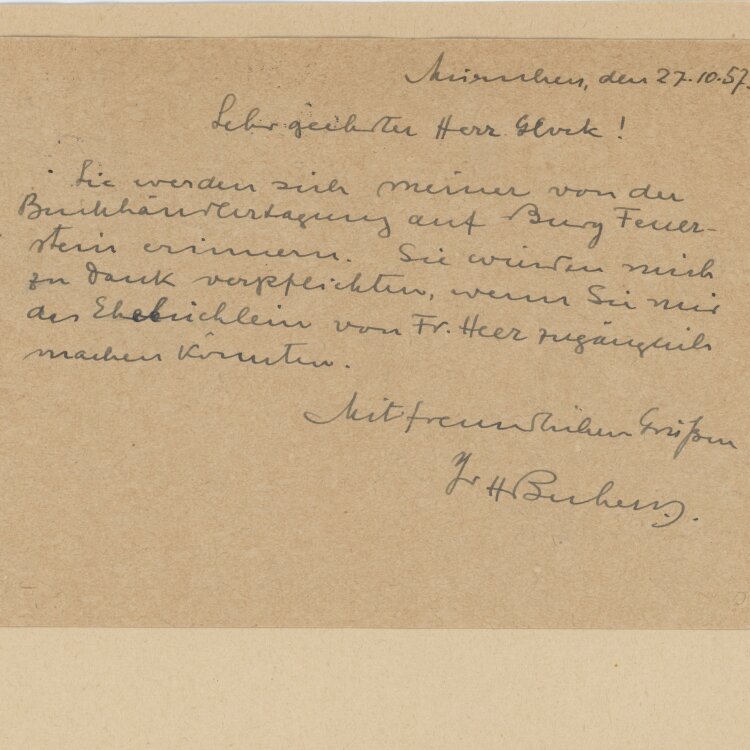 München, den 27.10.57.
Sehr geehrter Herr Glock!
Sie werden sich meiner von der
Buchhändlertagung auf Burg Feuer-
stein erinnern. Sie würden mich
zu Dank verpflichten, wenn Sie mir
das Ehebüchlein von Fr. Heer zugänglich
machen könnten.
Mit freundlichen Grüßen
Ihr H